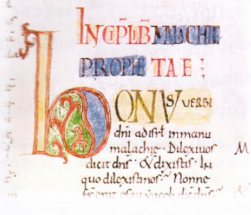 INCIP LIB MALACHIE
PROPHE TAE :
hONUS VERBI
dni ad isrl in manu
malachie · Dilexi uos M
dicit dns · & dixistis · In
quo dilexisti nos · Nonne